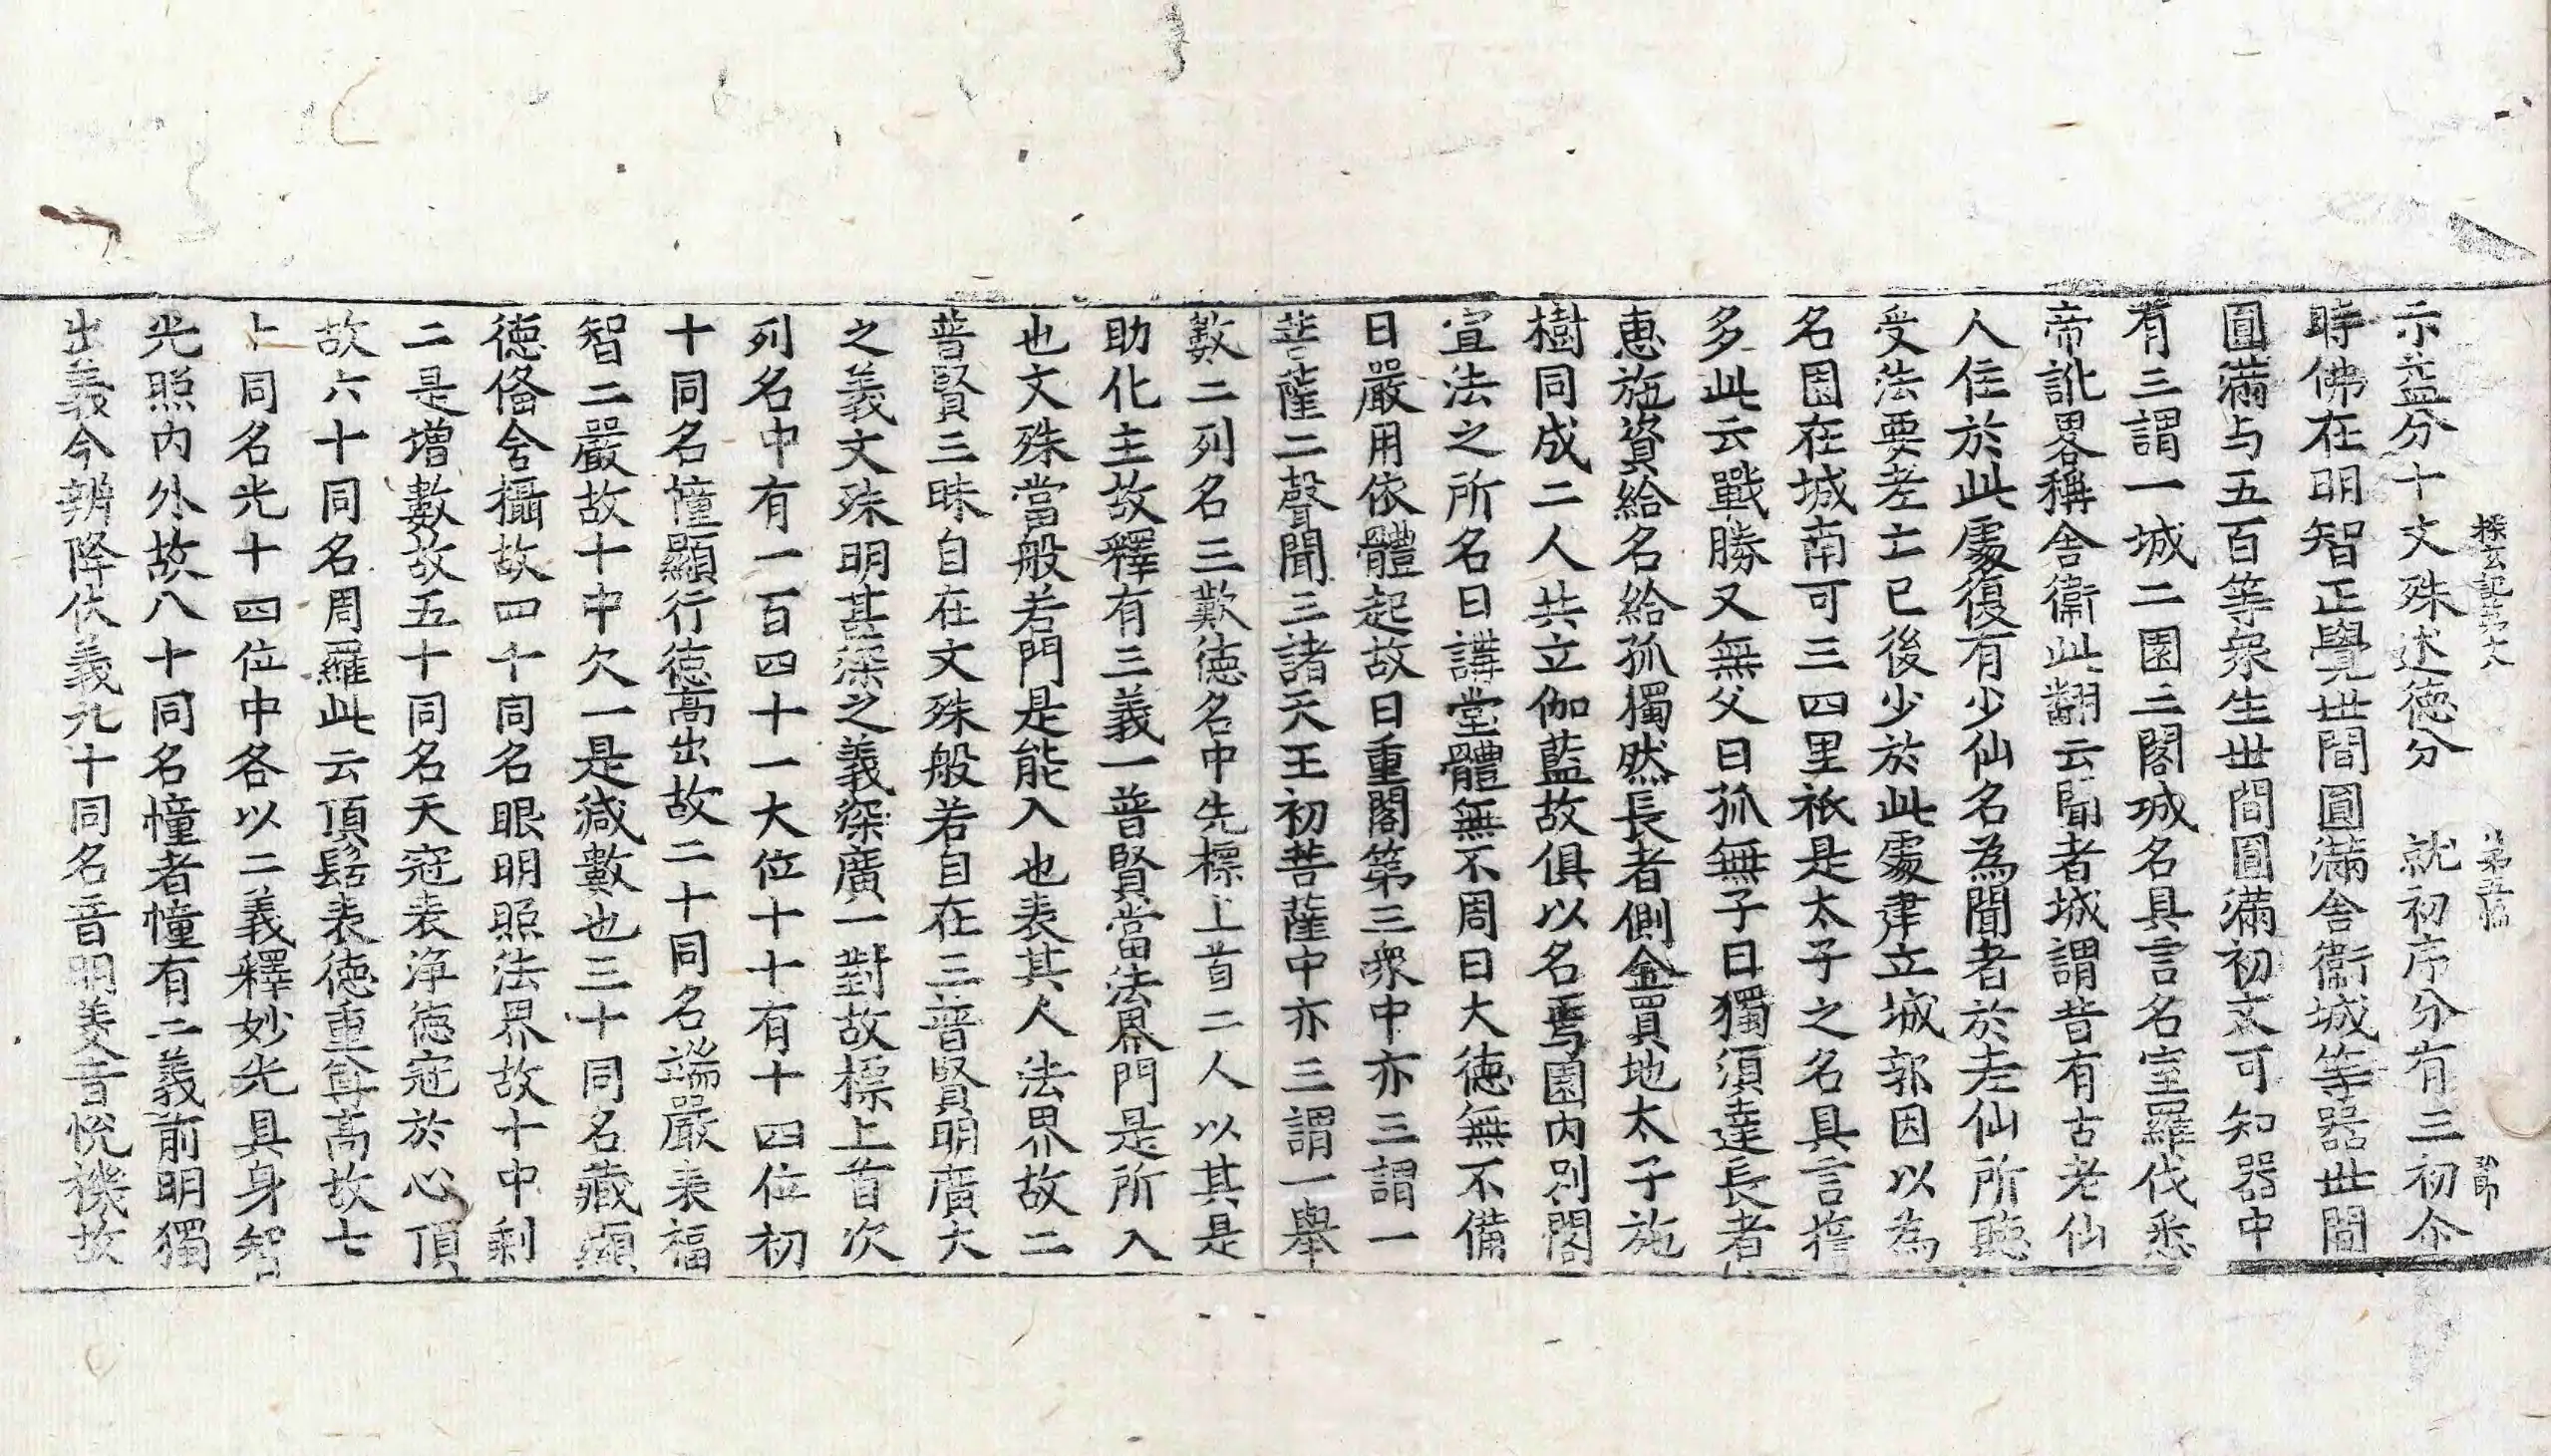 探玄記第十八 第五張 弘郎
示益分十文殊述德分 就初序分有三初㑒
時佛在明智正覺世間圓滿舍衛城等器世間
圓滿与五百等衆生世間圓滿初文可知器中
有三謂一城二園三閣城名具言名室羅伐悉
帝訛畧稱舍衛此翻云聞者城謂昔有古老仙
人住於此處復有少仙名為聞者於老仙所聽
受法要老亡已後少於此處建立城郭因以為
名園在城南可三四里祇是太子之名具言擔
多此云戰勝又無父曰孤無子曰獨須達長者
恵施資給名給孤獨然長者側金買地太子施
樹同成二人共立伽藍故俱以名焉園內別閣
宣法之所名曰講堂體無不周曰大德無不備
曰嚴用依體起故曰重閣第三衆中亦三謂一
菩薩二聲聞三諸天王初菩薩中亦三謂一舉
數二列名三歎德名中先標上首二人以其是
助化主故釋有三義一普賢當法界門是所入
也文殊當般若門是能入也表其人法界故二
普賢三昧自在文殊般若自在三普賢明廣大
之義文殊明甚深之義深廣一對故標上首次
列名中有一百四十一大位十十有十四位初
十同名幢顯行德高出故二十同名端嚴表福
智二嚴故十中欠一是減數也三十同名藏顯
德俻含攝故四十同名眼明照法界故十中剩
二是增數故五十同名天冠表淨德冠於心頂
故六十同名周羅此云頂髻表德重尊高故七
上同名光十四位中各以二義釋妙光具身智
光照內外故八十同名幢者幢有二義前明獨
出義今辨降伏義九十同名音明美音悅機故